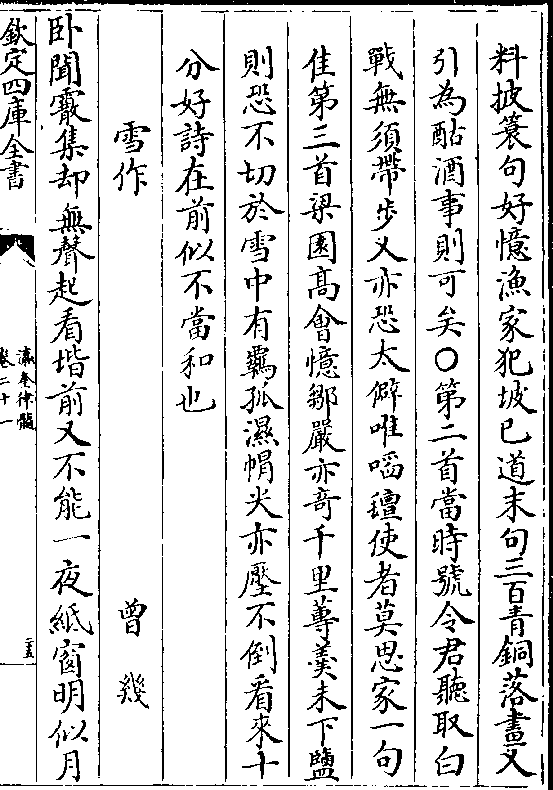 料披蓑句好憶漁家犯坡已道末句三百青銅落畫叉
引為酤酒事則可矣○第二首當時號令君聽取白
戰無須帶步叉亦恐太僻唯㗖氊使者莫思家一句
佳第三首梁園髙會憶鄒嚴亦竒千里蓴羮未下鹽
則恐不切於雪中有羈孤濕帽尖亦壓不倒看來十
分好詩在前似不當和也
雪作
曾幾
卧聞霰集却無聲起看堦前又不能一夜紙窗明似月
欽定四庫全書
瀛奎律髓
卷二十一
三五